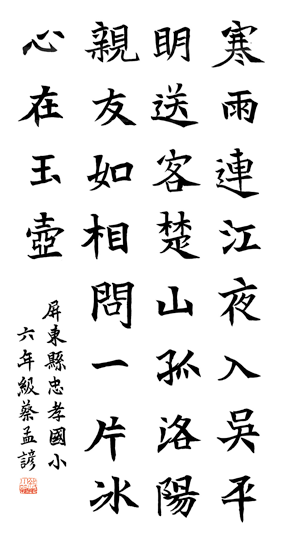 寒雨連江夜入吳平
明送客楚山孤洛陽
親友如相問一片冰
心在玉壺
屏東縣忠孝國小
六年級蔡孟諺